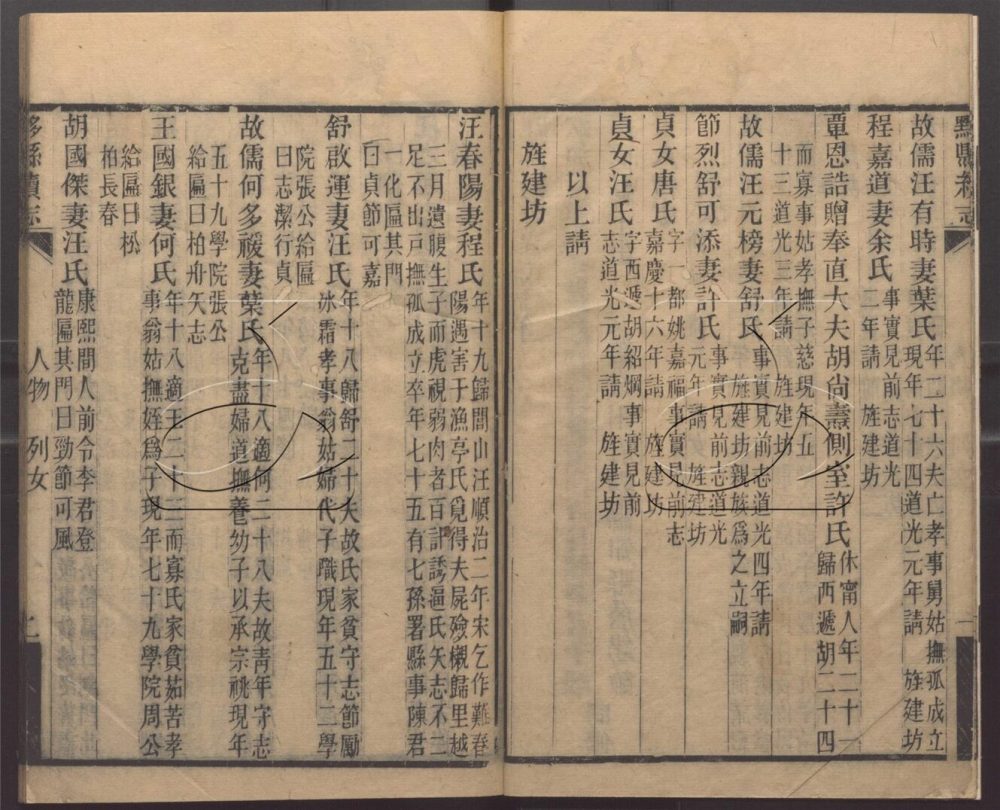 黟縣續志
故儒汪有時妻葉氏
年二十六夫亡孝事舅姑撫孤成立
現年七十四道光元年請 旌建坊
程嘉道妻余氏
事實見前志道光
二年請 旌建坊
覃恩誥贈奉直大夫胡尚燾側室許氏
休甯人年二十一
歸西遞胡二十四
而寡事姑孝撫子慈現年五
十三道光三年請 旌建坊
故儒汪元榜妻舒氏
事實見前志道光四年請
旌建坊親族爲之立嗣
節烈舒可添妻許氏
事實見前志道光
元年請 旌建坊
貞女唐氏
字一都姚嘉福事實見前志
嘉慶十六年請 旌建坊
貞女汪氏
字西遞胡紹烱事實見前
志道光元年請 旌建坊
以上請
旌建坊
汪春陽妻程氏
年十九歸閭山汪順治二年宋乞作難春
陽遇害于漁亭氏覓得夫屍殮櫬歸里越
三月遺腹生子而虎視弱肉者百計誘逼氏矢志不二
足不出戸撫孤成立卒年七十五有七孫署縣事陳君
一化匾其門
曰貞節可嘉
舒啟運妻汪氏
年十八歸舒二十夫故氏家貧守志節勵
冰霜孝事翁姑婦代子職現年五十二學
院張公給匾
曰志潔行貞
故儒何多禐妻葉氏
年十八適何二十八夫故青年守志
克盡婦道撫養幼子以承宗祧現年
五十九學院張公
給匾曰柏舟矢志
王國銀妻何氏
年十八適王二十三而寡氏家貧茹苦孝
事翁姑撫姪爲子現年七十九學院周公
給匾曰松
柏長春
胡國傑妻汪氏
康熙間人前令李君登
龍匾其門曰勁節可風
黟縣續志 人物 列女